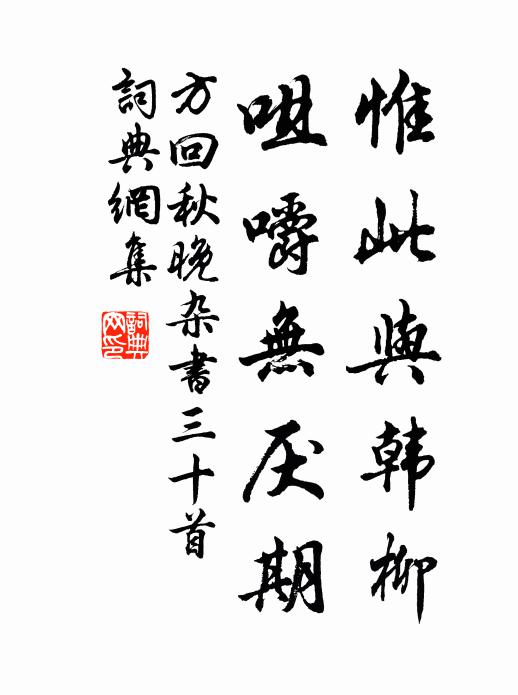 惟此與韩柳
咀嚼無厌期
方回秋晚杂書三十首
詞典網集
詞典网印